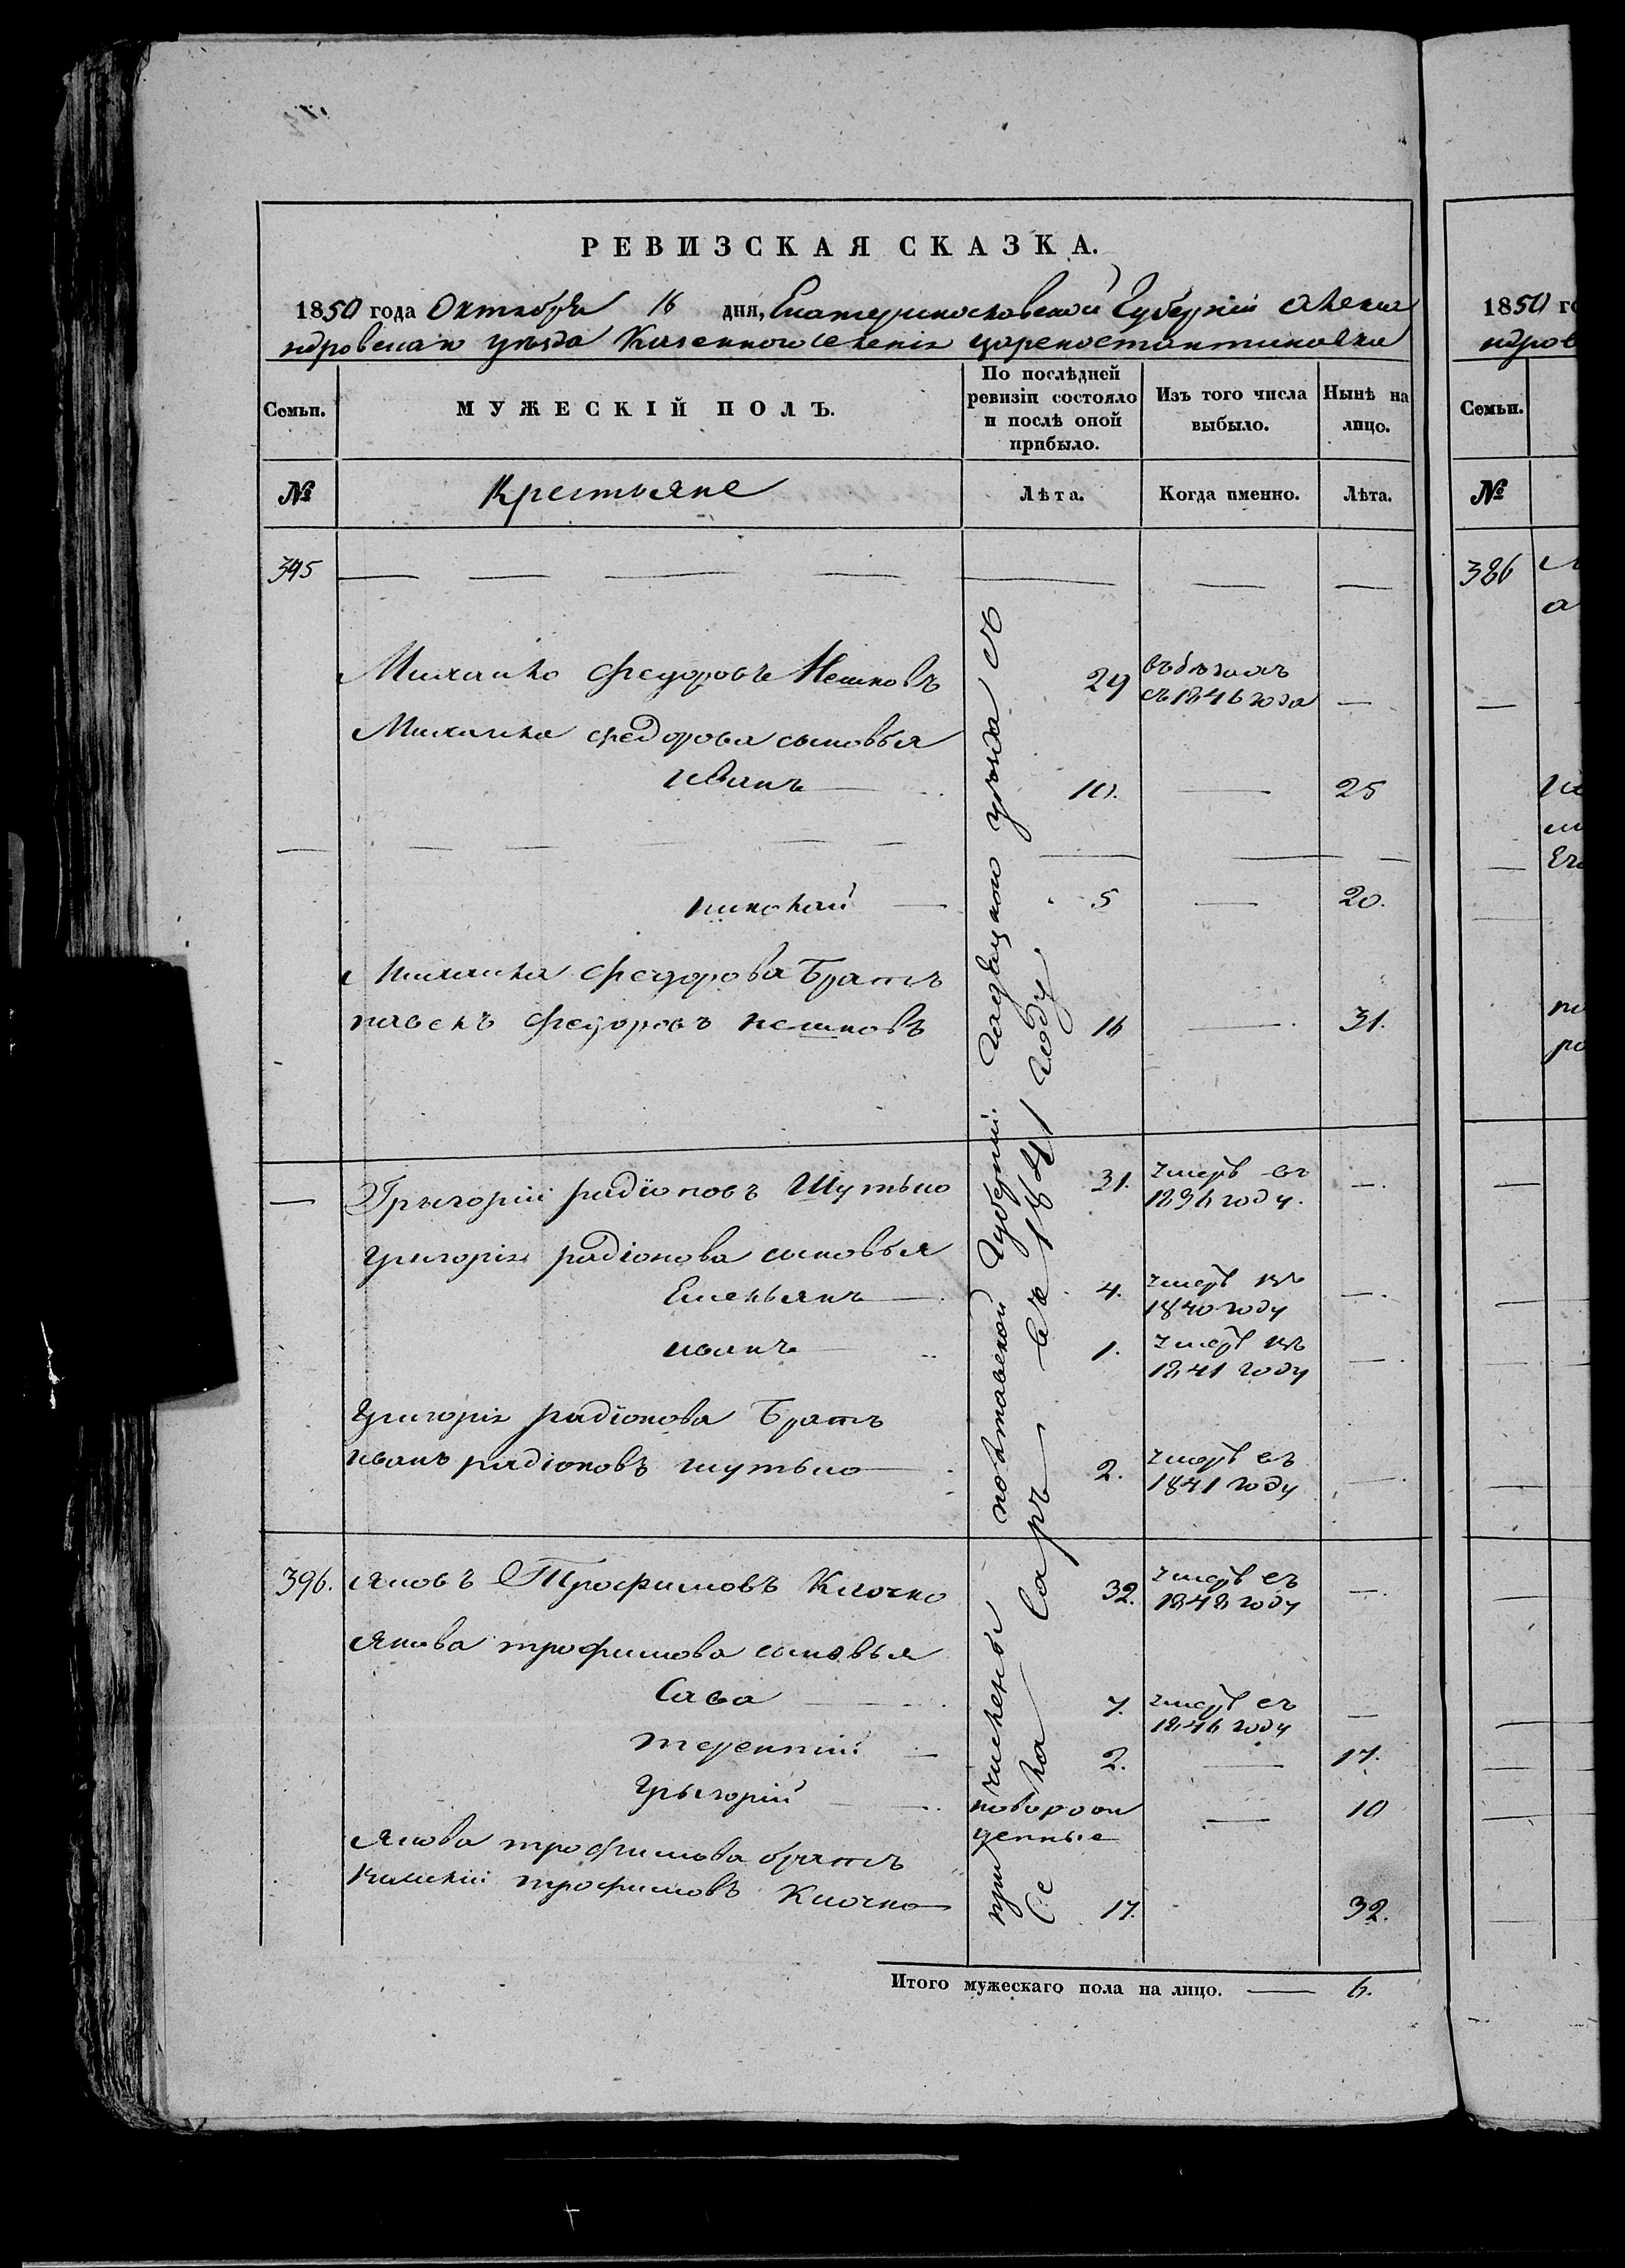 РЕВИЗСКАЯ СКАЗКА.
1850 года Октября 16 дня, Екатеринославской Губерніи Алекса
ндровскаго уѣзда Казенного селенія Цареконстантиновки
Семьи.
МУЖЕСКІЙ ПОЛЪ.
По послѣдней
ревизіи состояло
и послѣ оной
прибыло.
Изъ того числа
выбыло.
Нынѣ на
лицо.
№ Крестьяне Лѣта. Когда именно. Лѣта.
395
Михайло Федоровъ 29
съ 1846 года
Михайла Федорова сыновья
Иванъ 10. 25
николай 5 20.
Михайла Федорова Братъ
павелъ Федоровъ 16 31.
Григорій радіоновъ Шутько 31. умеръ въ
1836 году.
Григорія радіонова сыновья
Емельянъ 4. умеръ въ
1840 году
иванъ 1. умеръ въ
1841 году
Григорія радіонова Братъ
иванъ радіоновъ шутько 2. умеръ въ
1841 году
396. Яковъ Трофимовъ Клочко 32. умеръ въ
1848 году
Якова трофимова сыновья
Сава 7. умеръ въ
1846 году
терентій 2. 17.
Григорій новорож 10
денные
Якова трофимова братъ
трофимовъ Клочко 17. 32.
причислены полтавской Губерніи Гадяцкого уѣзда съ
Села Саръ въ 1841 году
Итого мужескаго пола на лицо. 6.
1850 го
ндров
Семьи.
№
386